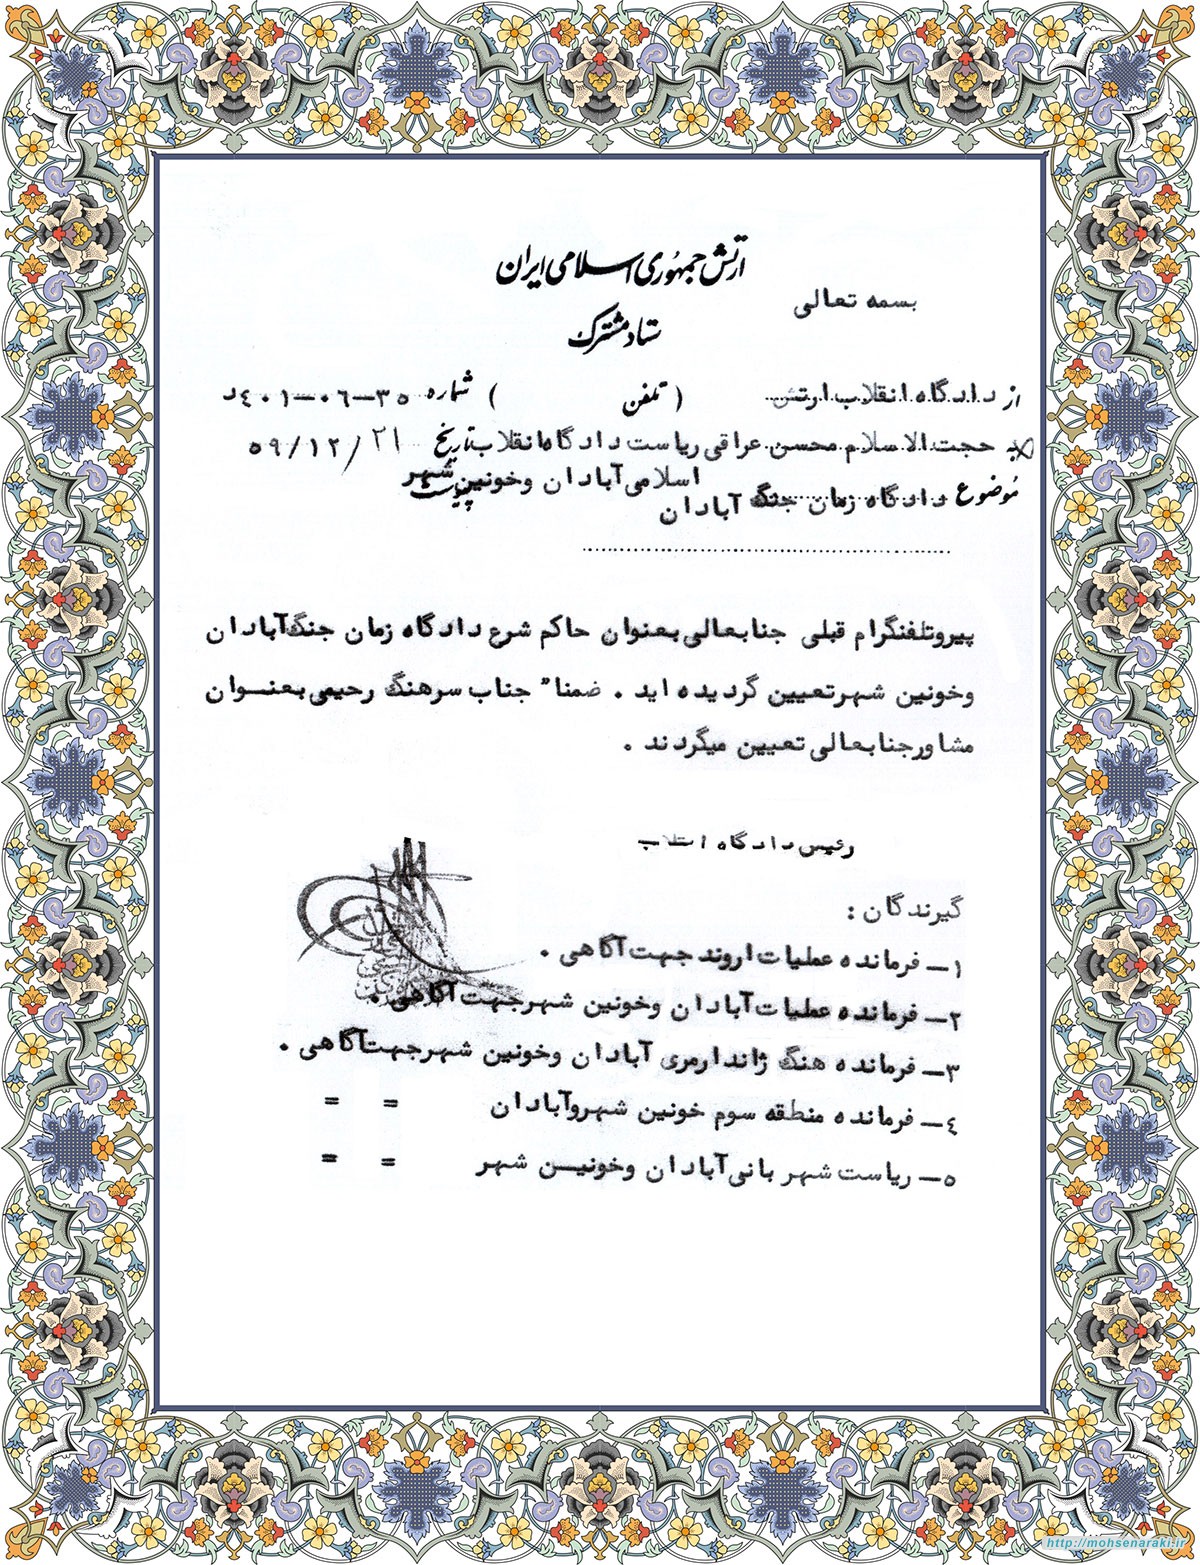 ارتش جمهوری اسلامی ایران
بسمه تعالی
ستاد مشترک
از دادگاه انقلاب ارتش ( تلفن ) شماره ۳۵-۰۶-۴۰۱د
به حجت الاسلام محسن عراقی ریاست دادگاه انقلاب تاریخ ۵۹/۱۲/۲۱
اسلامی آبادان و خونین شهر پیوست
موضوع دادگاه زمان جنگ آبادان
پیرو تلفنگرام قبلی جنابعالی بعنوان حاکم شرع دادگاه زمان جنگ آبادان
و خونین شهر تعیین گردیده اید . ضمنا" جناب سرهنگ رحیمی بعنوان
مشاور جنابعالی تعیین میگردند .
رئیس دادگاه انقلاب
گیرندگان :
۱- فرمانده عملیات اروند جهت آگاهی .
۲- فرمانده عملیات آبادان و خونین شهر جهت آگاهی .
۳- فرمانده هنگ ژاندارمری آبادان و خونین شهر جهت آگاهی .
۴- فرمانده منطقه سوم خونین شهر و آبادان = =
۵- ریاست شهر بانی آبادان و خونین شهر = =
http://mohsenaraki.ir